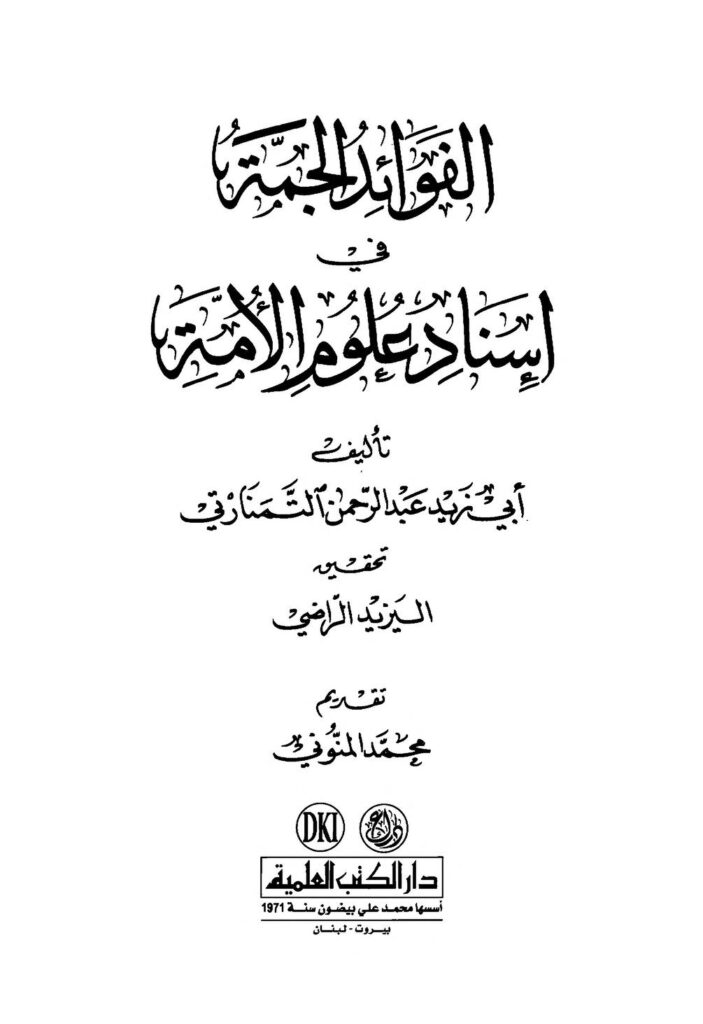 الفَوَائِدُ الجَمَّةُ
في
إِسْنَادِ عُلُومِ الأُمَّةِ
تأليف
أبي زيد عَبْد الرَّحمن التَّمَنَارْتي
تحقيق
اليزيد الرَّاضي
تقديم
محمَّد المنُّوني
DKI
دار الكتب العلمية
أسسها محمد علي بيضون سنة 1971
بيروت - لبنان